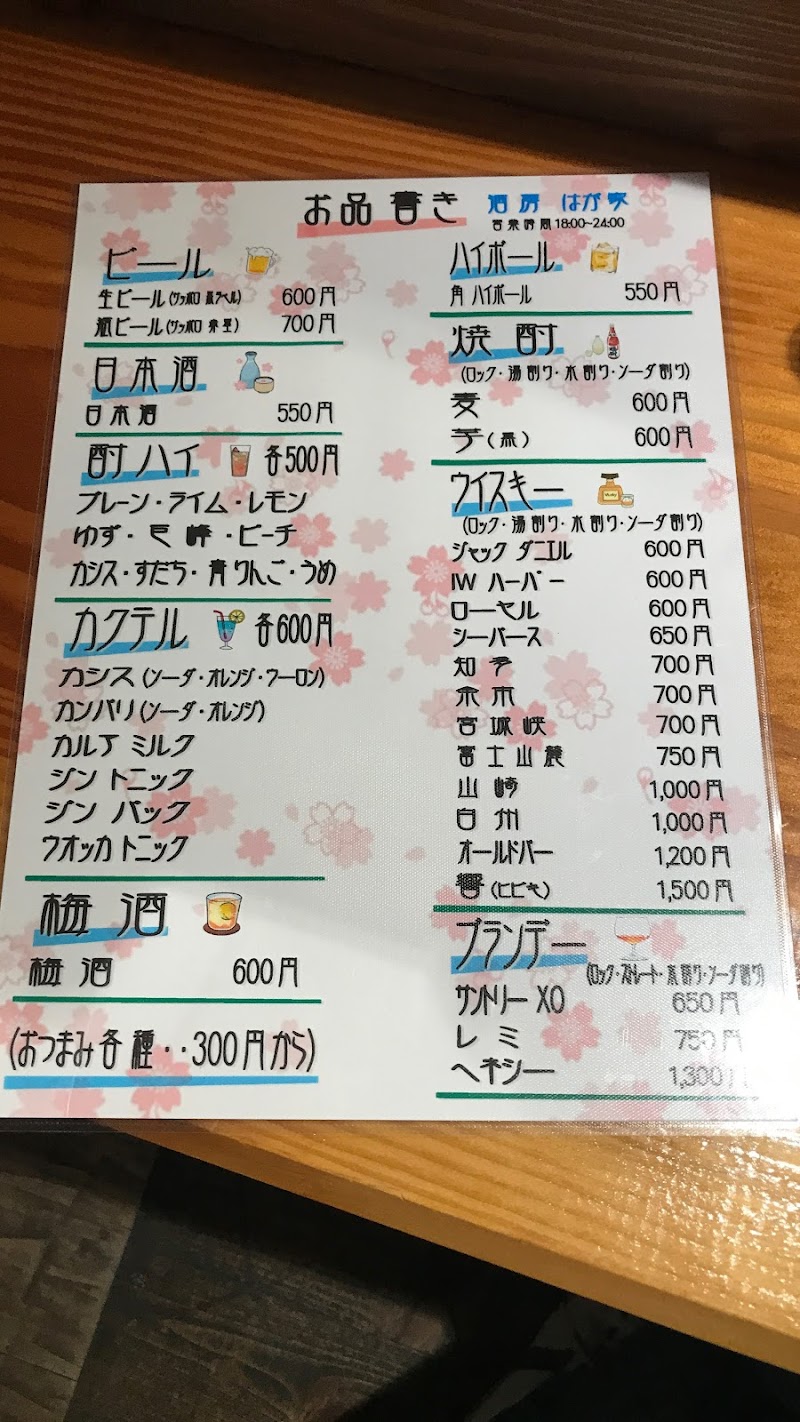 お品書き 酒房 はが家
営業時間 18:00~24:00
ビール
生ビール(サッポロ 黒ラベル) 600円
瓶ビール(サッポロ 赤星) 700円
日本酒
日本酒 550円
酎ハイ 各500円
プレーン・ライム・レモン
ゆず・巨峰・ピーチ
カシス・すだち・青りんご・うめ
カクテル 各600円
カシス(ソーダ・オレンジ・ウーロン)
カンパリ(ソーダ・オレンジ)
カルア ミルク
ジン トニック
ジン バック
ウオッカ トニック
梅酒
梅酒 600円
(おつまみ各種・・300円から)
ハイボール
角 ハイボール 550円
焼酎
(ロック・湯割り・水割り・ソーダ割り)
麦 600円
芋(黒) 600円
ウイスキー
(ロック・湯割り・水割り・ソーダ割り)
ジャック ダニエル 600円
IW ハーパー 600円
ローヤル 600円
シーバース 650円
知多 700円
余市 700円
宮城峡 700円
富士山麓 750円
山崎 1,000円
白州 1,000円
オールドパー 1,200円
響(ヒビキ) 1,500円
ブランデー
(ロック・ストレート・水割り・ソーダ割り)
サントリー XO 650円
レミ 750円
ヘネシー 1,300円